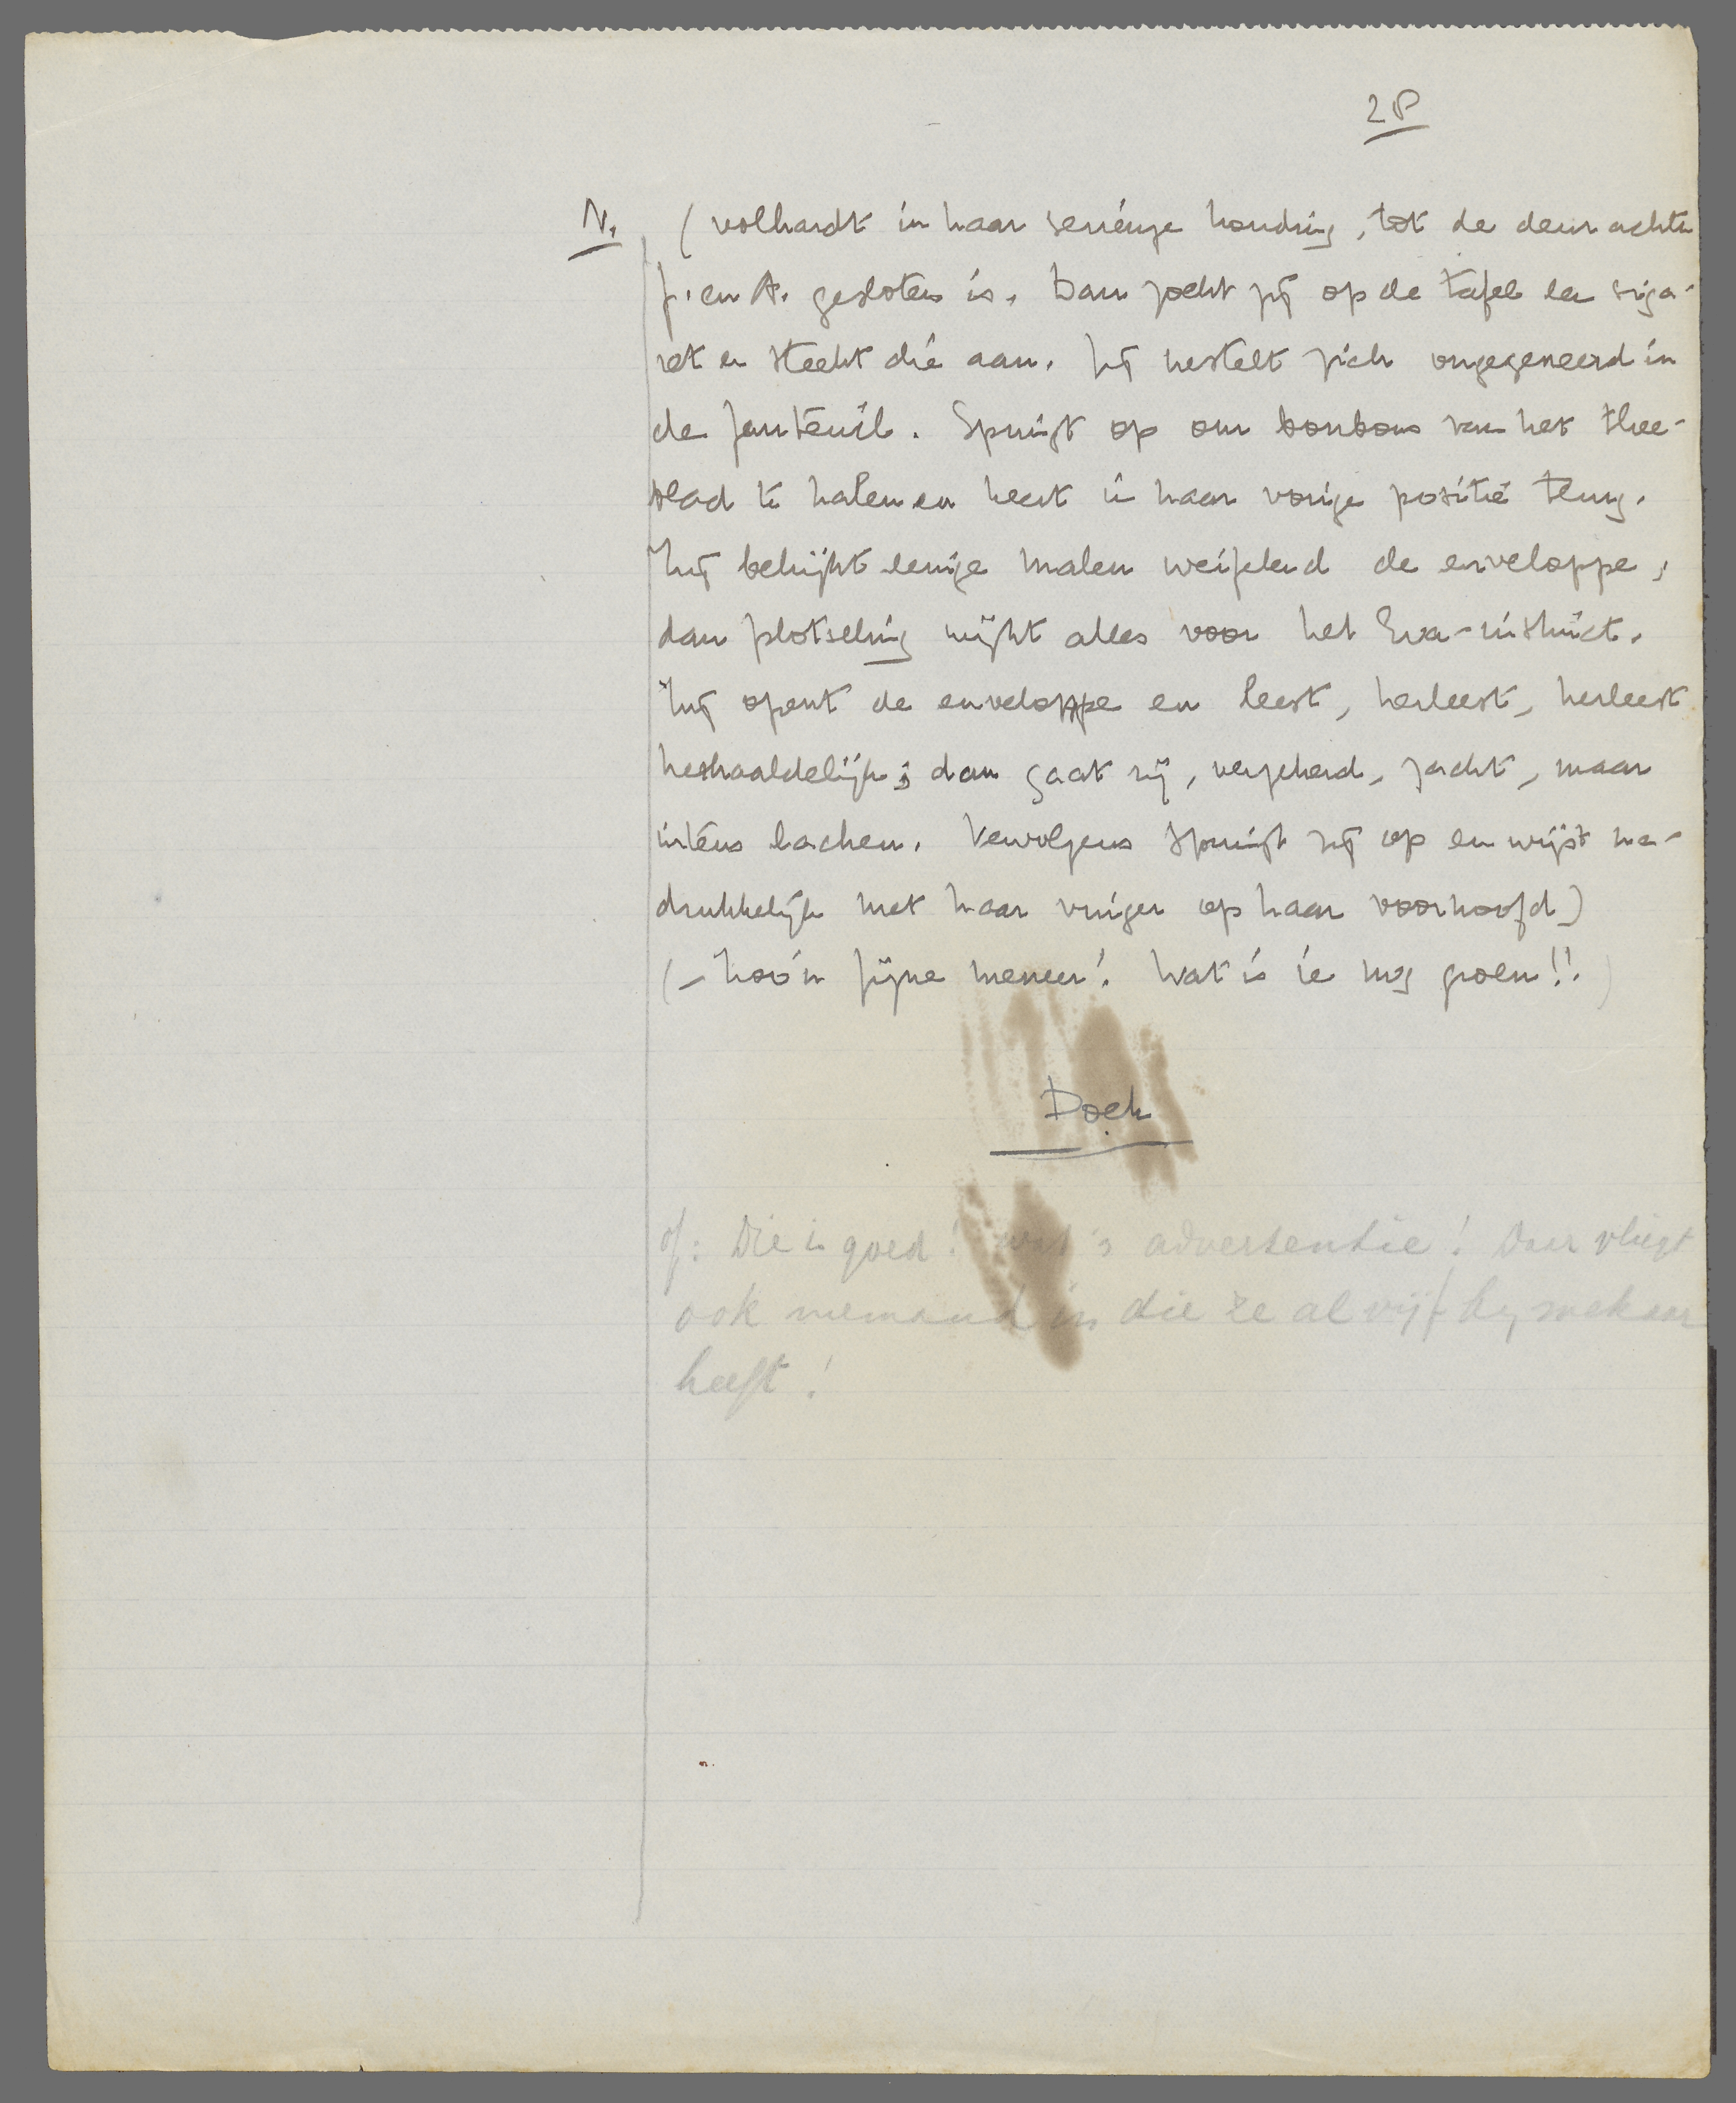 28
N. (volhardt in haar serieuze houding, tot de deur achter
F. en A. gesloten is. Dan zoekt zij op de tafel een siga-
ret en steekt die aan. Zij nestelt zich ongegeneerd in
de fauteuil. Springt op om bonbons van het thee-
blad te halen en keert in haar vorige positie terug.
Zij bekijkt eenige malen weifelend de enveloppe,
dan plotseling wijkt alles voor het Eva-instinct.
Zij opent de enveloppe en leest, herleest, herleest
herhaaldelijk; dan gaat zij, zacht, maar
intens lachen. Vervolgens springt zij op en wijst na-
drukkelijk met haar vinger op haar voorhoofd)
(- Zoo'n fijne meneer! Wat is ie nog groen!!)
Doek
of: Die is goed! advertentie! Daar vliegt
ook niemand in die ze al vijf bij mekaar
heeft!